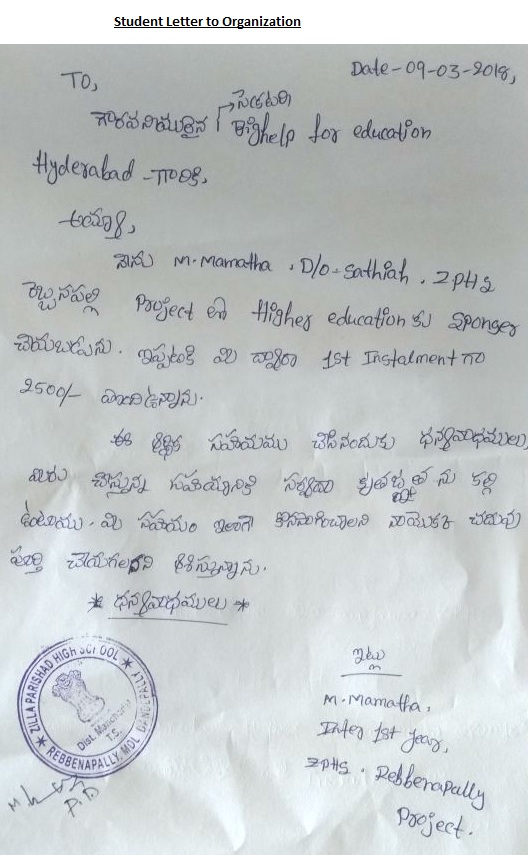 Student Letter to Organization
Date-09-03-2018,
To,
సెక్రటరి
గౌరవనియులైన help for education
Hyderabad - గారికి,
అయ్యా,
నేను M.Mamatha, D/o-Sathiah. ZPHS
రెబ్బనపల్లి Project లో Higher education కు Sponser
చేయబడ్డాను. ఇప్పటికి మీ ద్వారా 1st Instalment గా
2500/- పొంది ఉన్నాను.
ఈ ఆర్థిక సహాయము చేసినందుకు ధన్యవాధములు,
మీరు చేస్తున్న సహాయానికి సర్వదా కృతజ్ఞత ను కల్గి
ఉంటాము. మీ సహాయం ఇలాగే కొనసాగించాలని నాయొక్క చదువు
పూర్తి చేయగలనని ఆశిస్తున్నాను.
* ధన్యవాధములు *
ఇట్లు
M.Mamatha,
Inter 1st year,
ZPHS. Rebbenapally
Project.
ZILLA PARISHAD HIGH SCHOOL
Dist. Mancherial
T.S.
REBBENAPALLY, MDL. DANDEPALLY
P.D